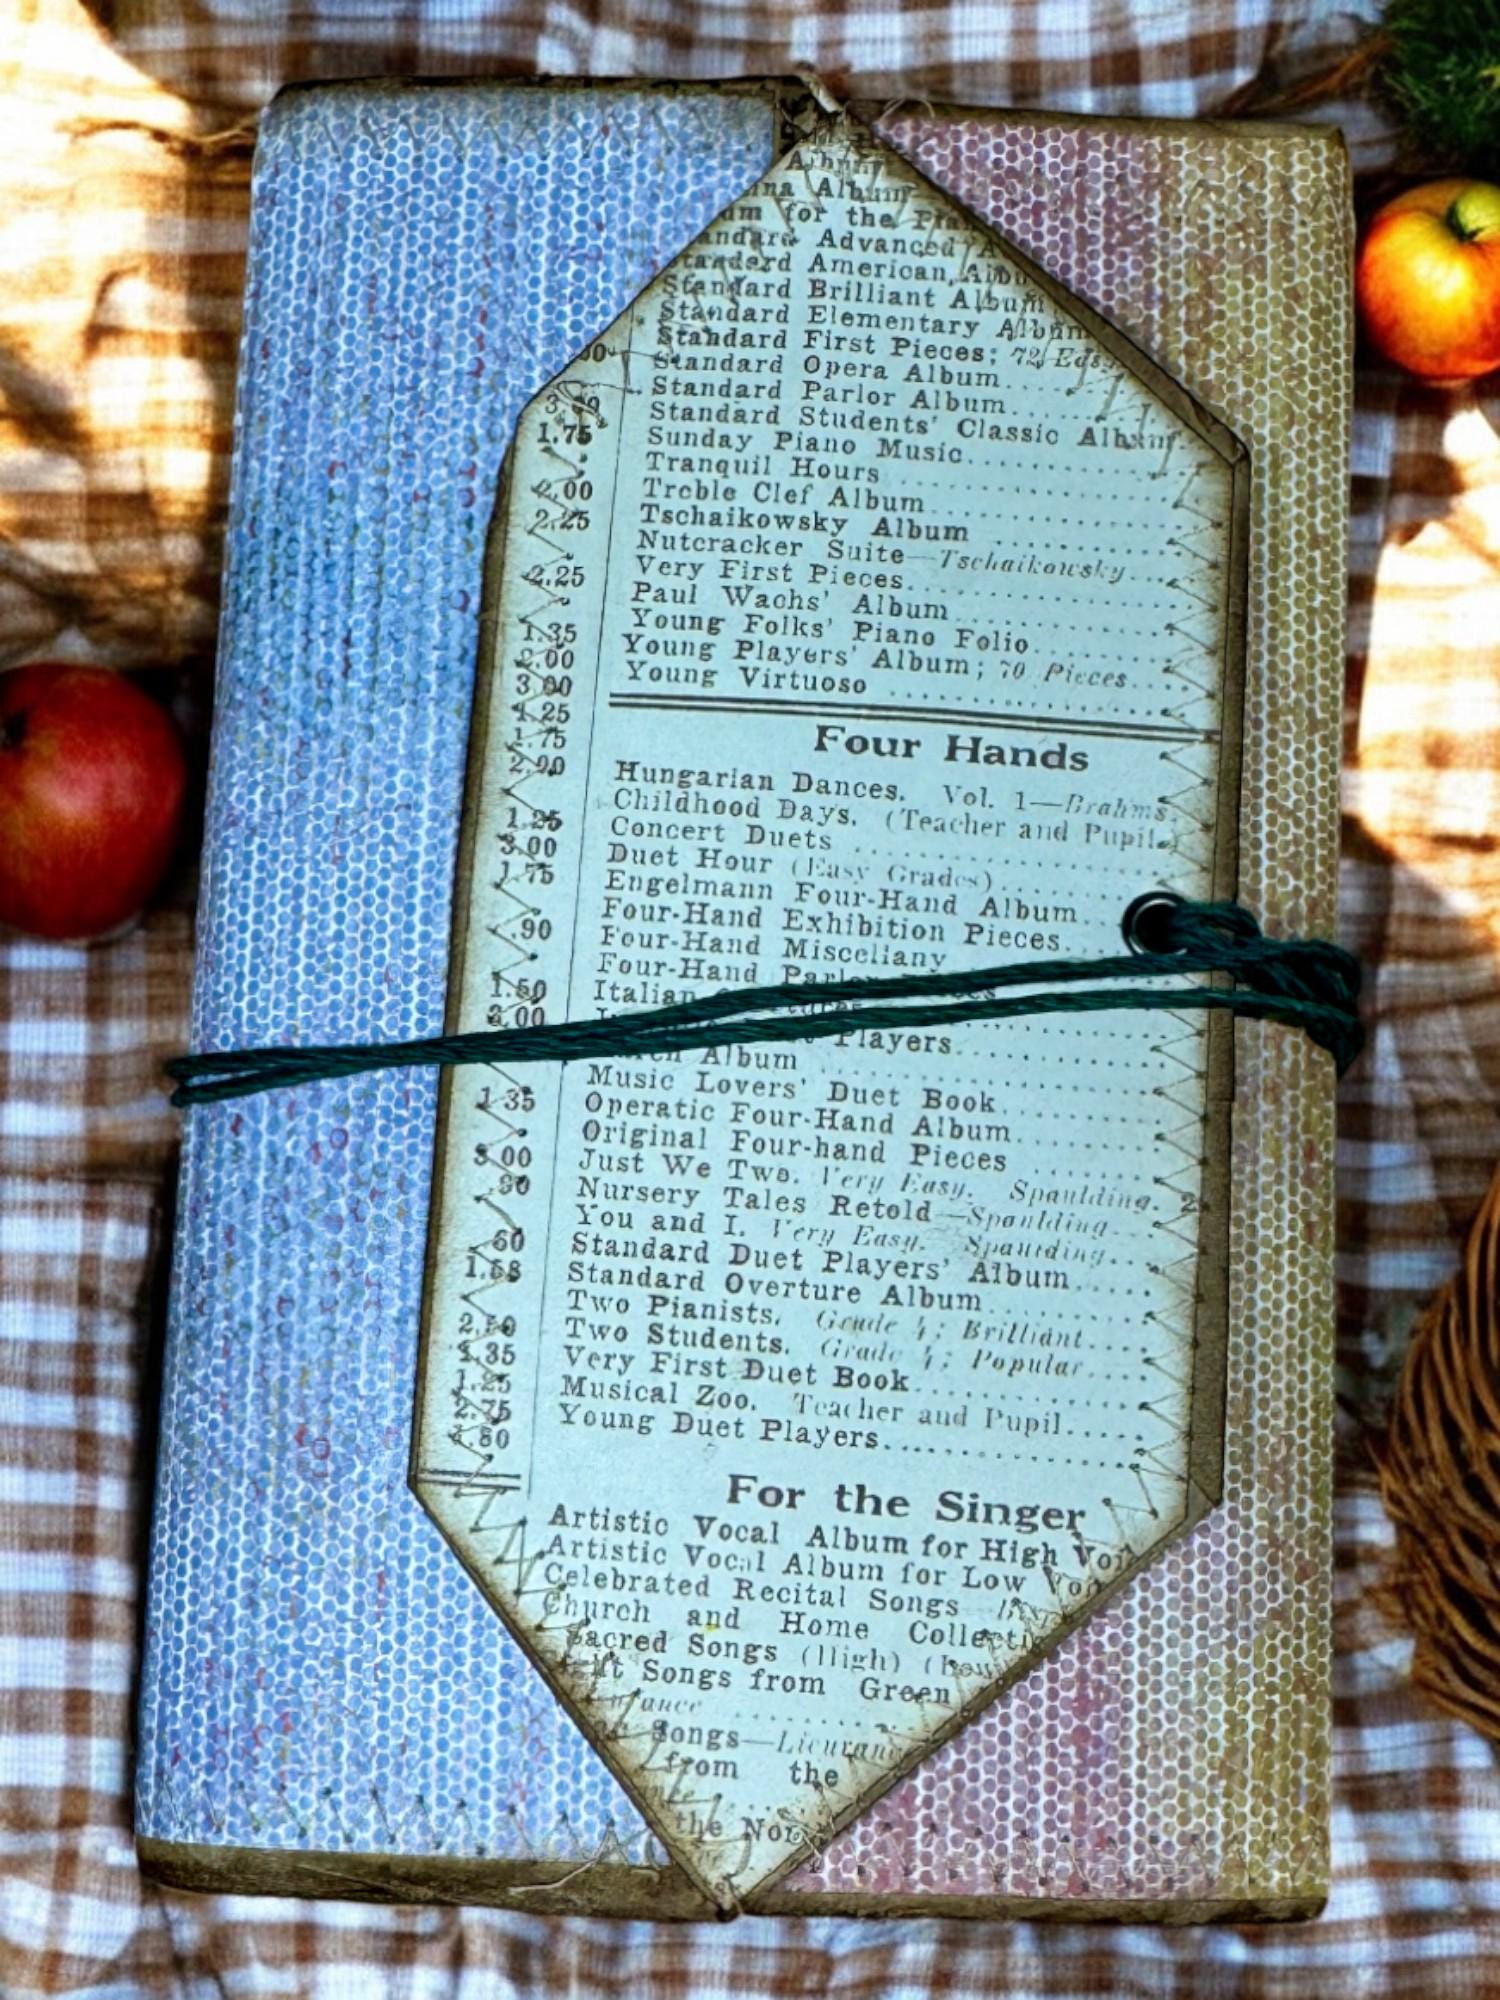 Album
na Album
um for the
andard Advanced
tandard American Albu
Standard Brilliant Album
Standard Elementary Album
Standard First Pieces; 72 Easy
Standard Opera Album
Standard Parlor Album
1.75 Standard Students' Classic Album
Sunday Piano Music
2.00 Tranquil Hours
2.25 Treble Clef Album
Tschaikowsky Album
2.25 Nutcracker Suite—Tschaikowsky
Very First Pieces
1.35 Paul Wachs' Album
2.00 Young Folks' Piano Folio
3.00 Young Players' Album; 70 Pieces
1.25 Young Virtuoso
1.75
2.00
Four Hands
Hungarian Dances. Vol. 1—Brahms.
1.25 Childhood Days. (Teacher and Pupil.)
3.00 Concert Duets
1.75 Duet Hour (Easy Grades)
Engelmann Four-Hand Album
.90 Four-Hand Exhibition Pieces
Four-Hand Miscellany
1.50 Four-Hand
3.00 Italian
Players
Album
Music Lovers' Duet Book
1.35 Operatic Four-Hand Album
Original Four-hand Pieces
3.00 Just We Two. Very Easy. Spaulding. 2
Nursery Tales Retold—Spaulding
You and I. Very Easy. Spaulding
.60 Standard Duet Players' Album
Standard Overture Album
Two Pianists. Grade 4; Brilliant
Two Students. Grade 4; Popular
1.35 Very First Duet Book
1.25 Musical Zoo. Teacher and Pupil
2.75 Young Duet Players
For the Singer
Artistic Vocal Album for High Voi
Artistic Vocal Album for Low Voi
Celebrated Recital Songs
Church and Home Collecti
Sacred Songs (High) (Low
Songs from Green
Songs—Lieurance
from the
the Nor